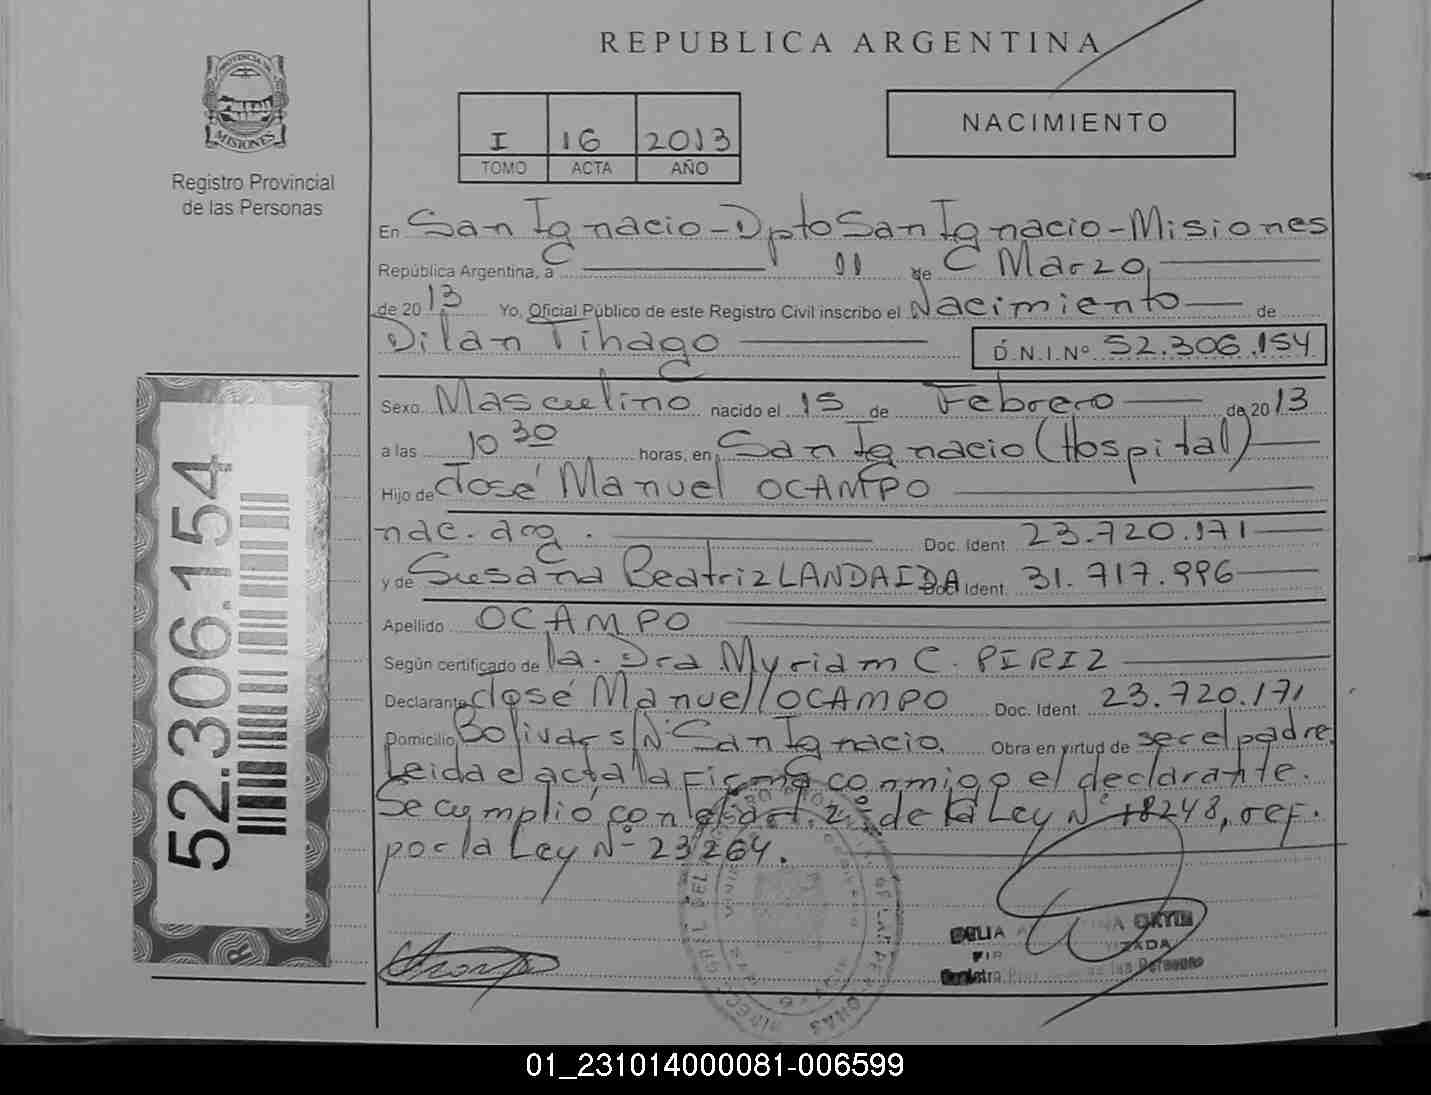 REPUBLICA ARGENTINA
PROVINCIA DE
MISIONES
Registro Provincial
de las Personas
I 16 2013
TOMO ACTA AÑO
NACIMIENTO
En San Ignacio - Dpto San Ignacio - Misiones
República Argentina, a 11 de Marzo
de 2013 Yo, Oficial Público de este Registro Civil inscribo el Nacimiento de
Dilan Tihago D.N.I.Nº 52.306.154
Sexo Masculino nacido el 15 de Febrero de 2013
a las 10 30 horas, en San Ignacio (Hospital)
Hijo de José Manuel OCAMPO
nac. arg. Doc. Ident. 23.720.171
y de Susana Beatriz LANDAIDA Doc. Ident. 31.717.996
Apellido OCAMPO
Según certificado de la. Dra Myriam C. PIRIZ
Declarante José Manuel OCAMPO Doc. Ident. 23.720.171
Domicilio Bolivar S/Nº San Ignacio. Obra en virtud de ser el padre
Leida el acta la firma conmigo el declarante.
Se cumplió con el art. 2º de la Ley Nº 18248, ref.
por la Ley Nº 23264.
52.306.154
DELIA
Registro
de las Personas
01_231014000081-006599